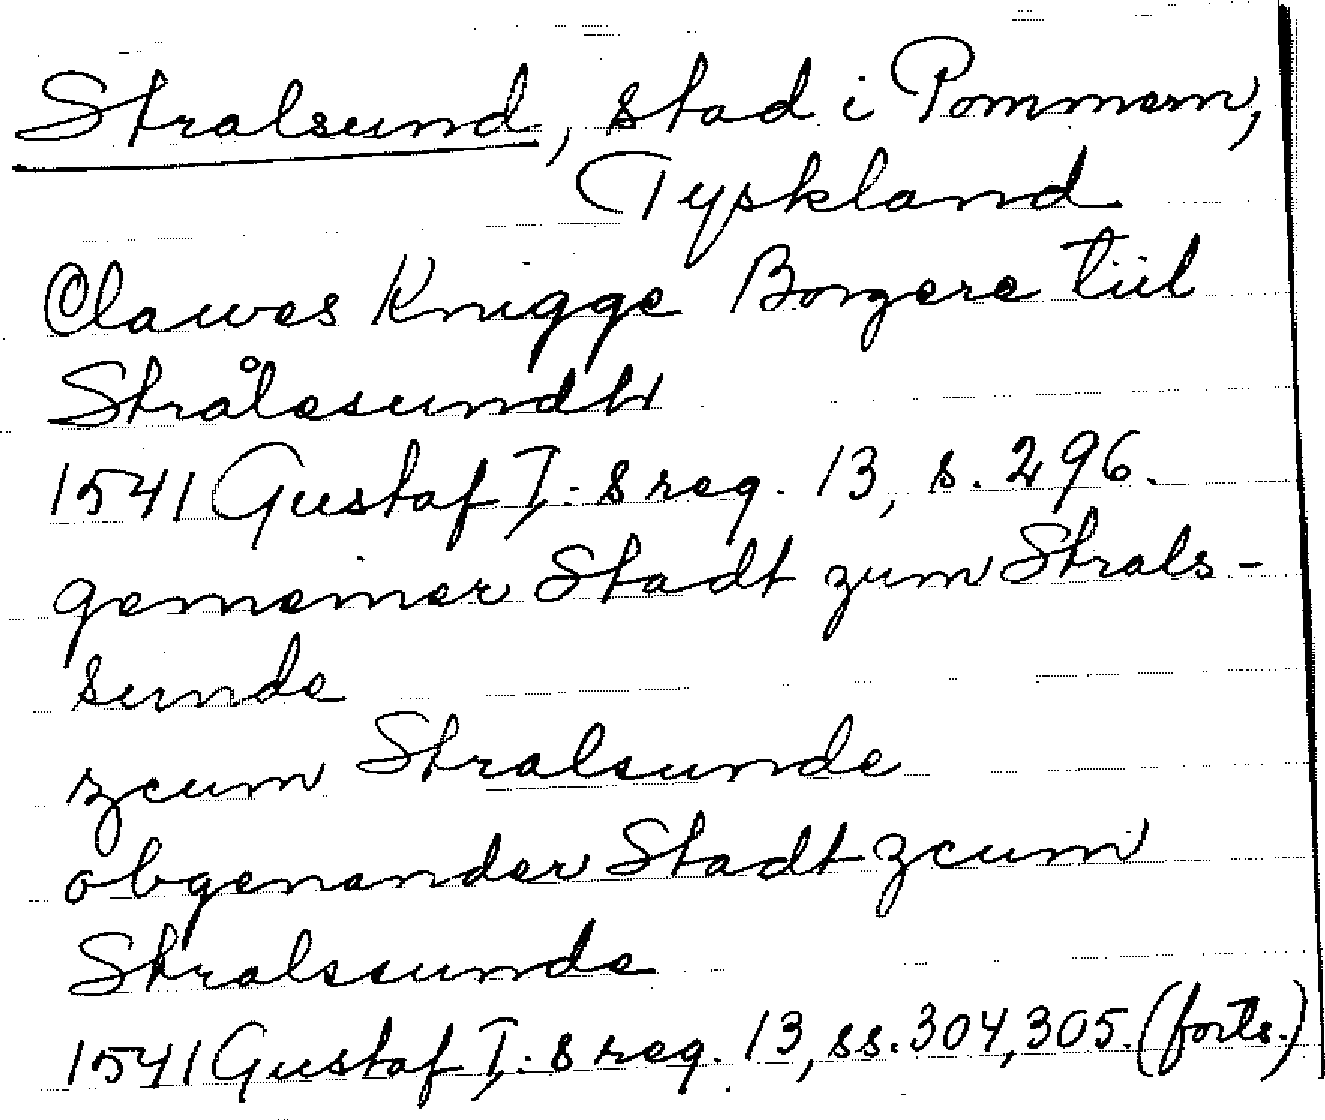 Stralsund, stad i Pommern,
Tyskland
Clawes Knigge Borgere tiil
Strålesundtt
1541 Gustaf I:s reg. 13, s. 296.
gemeiner Stadt zum Strals-
sunde
zcum Stralsunde
obgenander Stadt zcum
Stralssunde
1541 Gustaf I:s reg. 13, ss. 304, 305. (forts.)